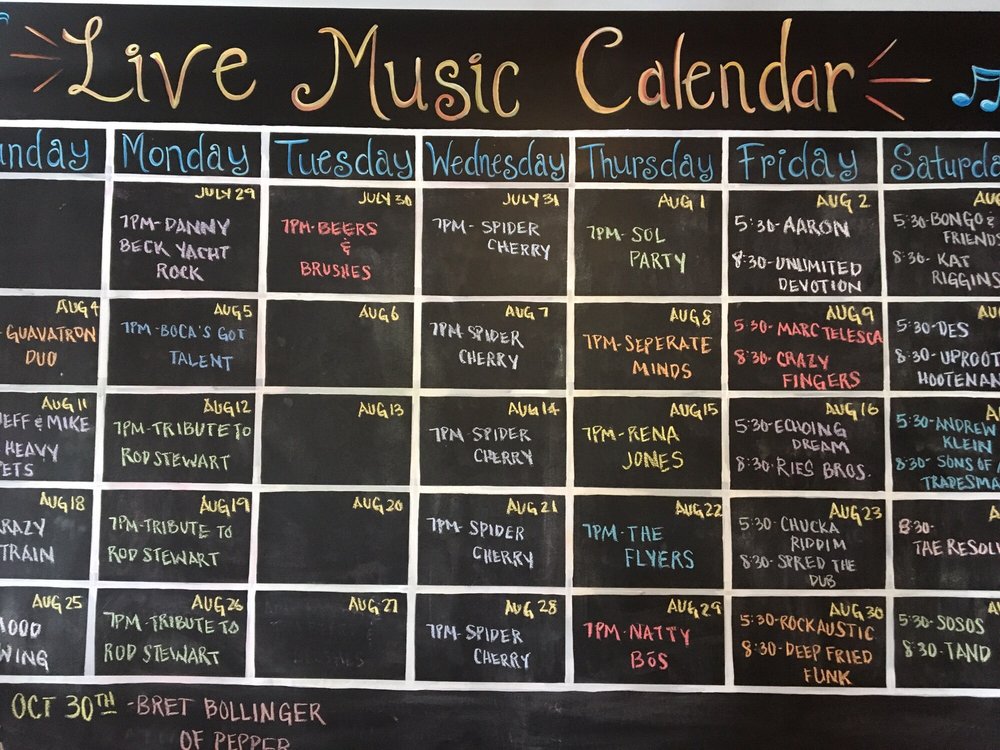 Live Music Calendar
unday Monday Tuesday Wednesday Thursday Friday Saturda
JULY 29
7PM-DANNY
BECK YACHT
ROCK
JULY 30
7PM-BEERS
&
BRUSHES
JULY 31
7PM- SPIDER
CHERRY
AUG 1
7PM- SOL
PARTY
AUG 2
5:30-AARON
8:30-UNLIMITED
DEVOTION
AU
5:30-BONGO &
FRIENDS
8:30- KAT
RIGGINS
AUG 4
- GUAVATRON
DUO
AUG 5
7PM-BOCA'S GOT
TALENT
AUG 6
AUG 7
7PM-SPIDER
CHERRY
AUG 8
7PM-SEPERATE
MINDS
AUG 9
5:30- MARC TELESCA
8:30- CRAZY
FINGERS
AU
5:30-DES
8:30-UPROOT
HOOTENAN
AUG 11
JEFF & MIKE
HEAVY
PETS
AUG 12
7PM-TRIBUTE TO
ROD STEWART
AUG 13
AUG 14
7PM SPIDER
CHERRY
AUG 15
7PM-RENA
JONES
AUG 16
5:30-ECHOING
DREAM
8:30-RIES BROS.
A
5:30-ANDREW
KLEIN
8:30- SONS OF A
TRADESMA
AUG 18
RAZY
TRAIN
AUG 19
7PM-TRIBUTE TO
ROD STEWART
AUG 20
AUG 21
7PM-SPIDER
CHERRY
AUG 22
7PM-THE
FLYERS
AUG 23
5:30- CHUCKA
RIDDIM
8:30- SPRED THE
DUB
A
8:30-
TAE RESOLU
AUG 25
OOD
WING
AUG 26
7PM-TRIBUTE TO
ROD STEWART
AUG 27
AUG 28
7PM- SPIDER
CHERRY
AUG 29
7PM- NATTY
BOS
AUG 30
5:30-ROCKAUSTIC
8:30-DEEP FRIED
FUNK
A
5:30-SOSOS
8:30-TAND
OCT 30TH -BRET BOLLINGER
OF PEPPER